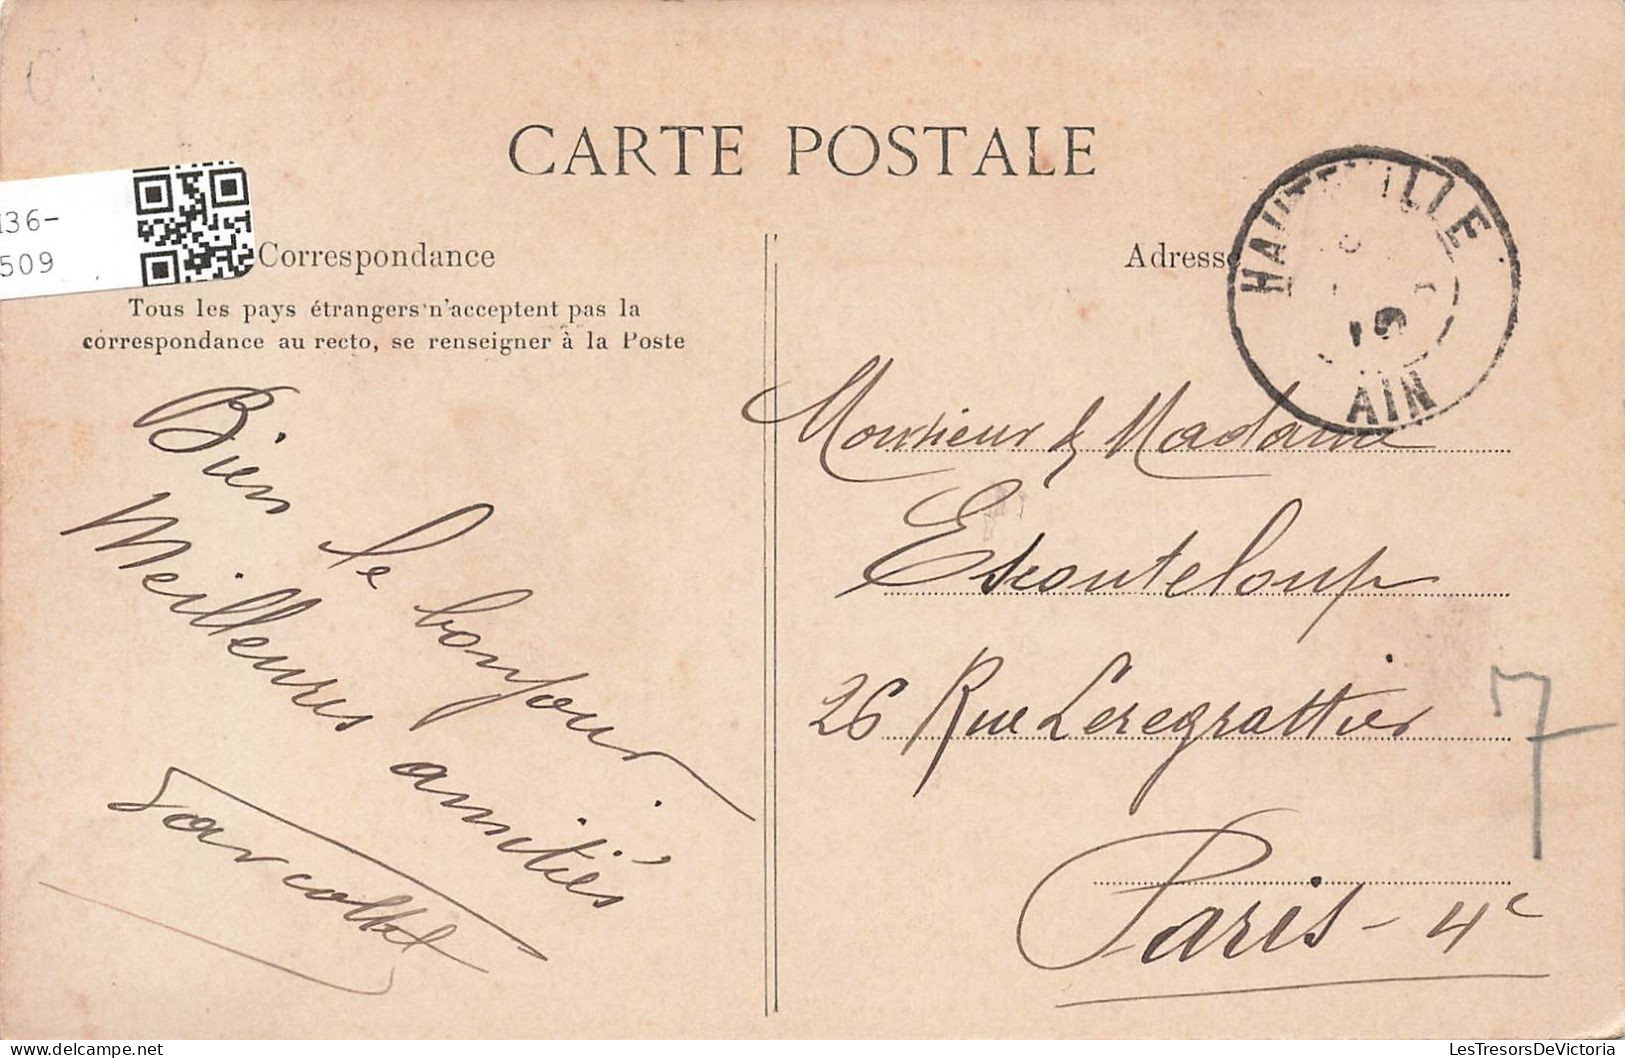 CARTE POSTALE
HAUTEVILLE
AIN
136-
509
Correspondance
Adresse
Tous les pays étrangers n'acceptent pas la
correspondance au recto, se renseigner à la Poste
Bien le bonjour
Meilleures amitiés
Monsieur & Madame
Escouteloup
26 Rue Leregrattier
Paris - 4e
7
LesTresorsDeVictoria